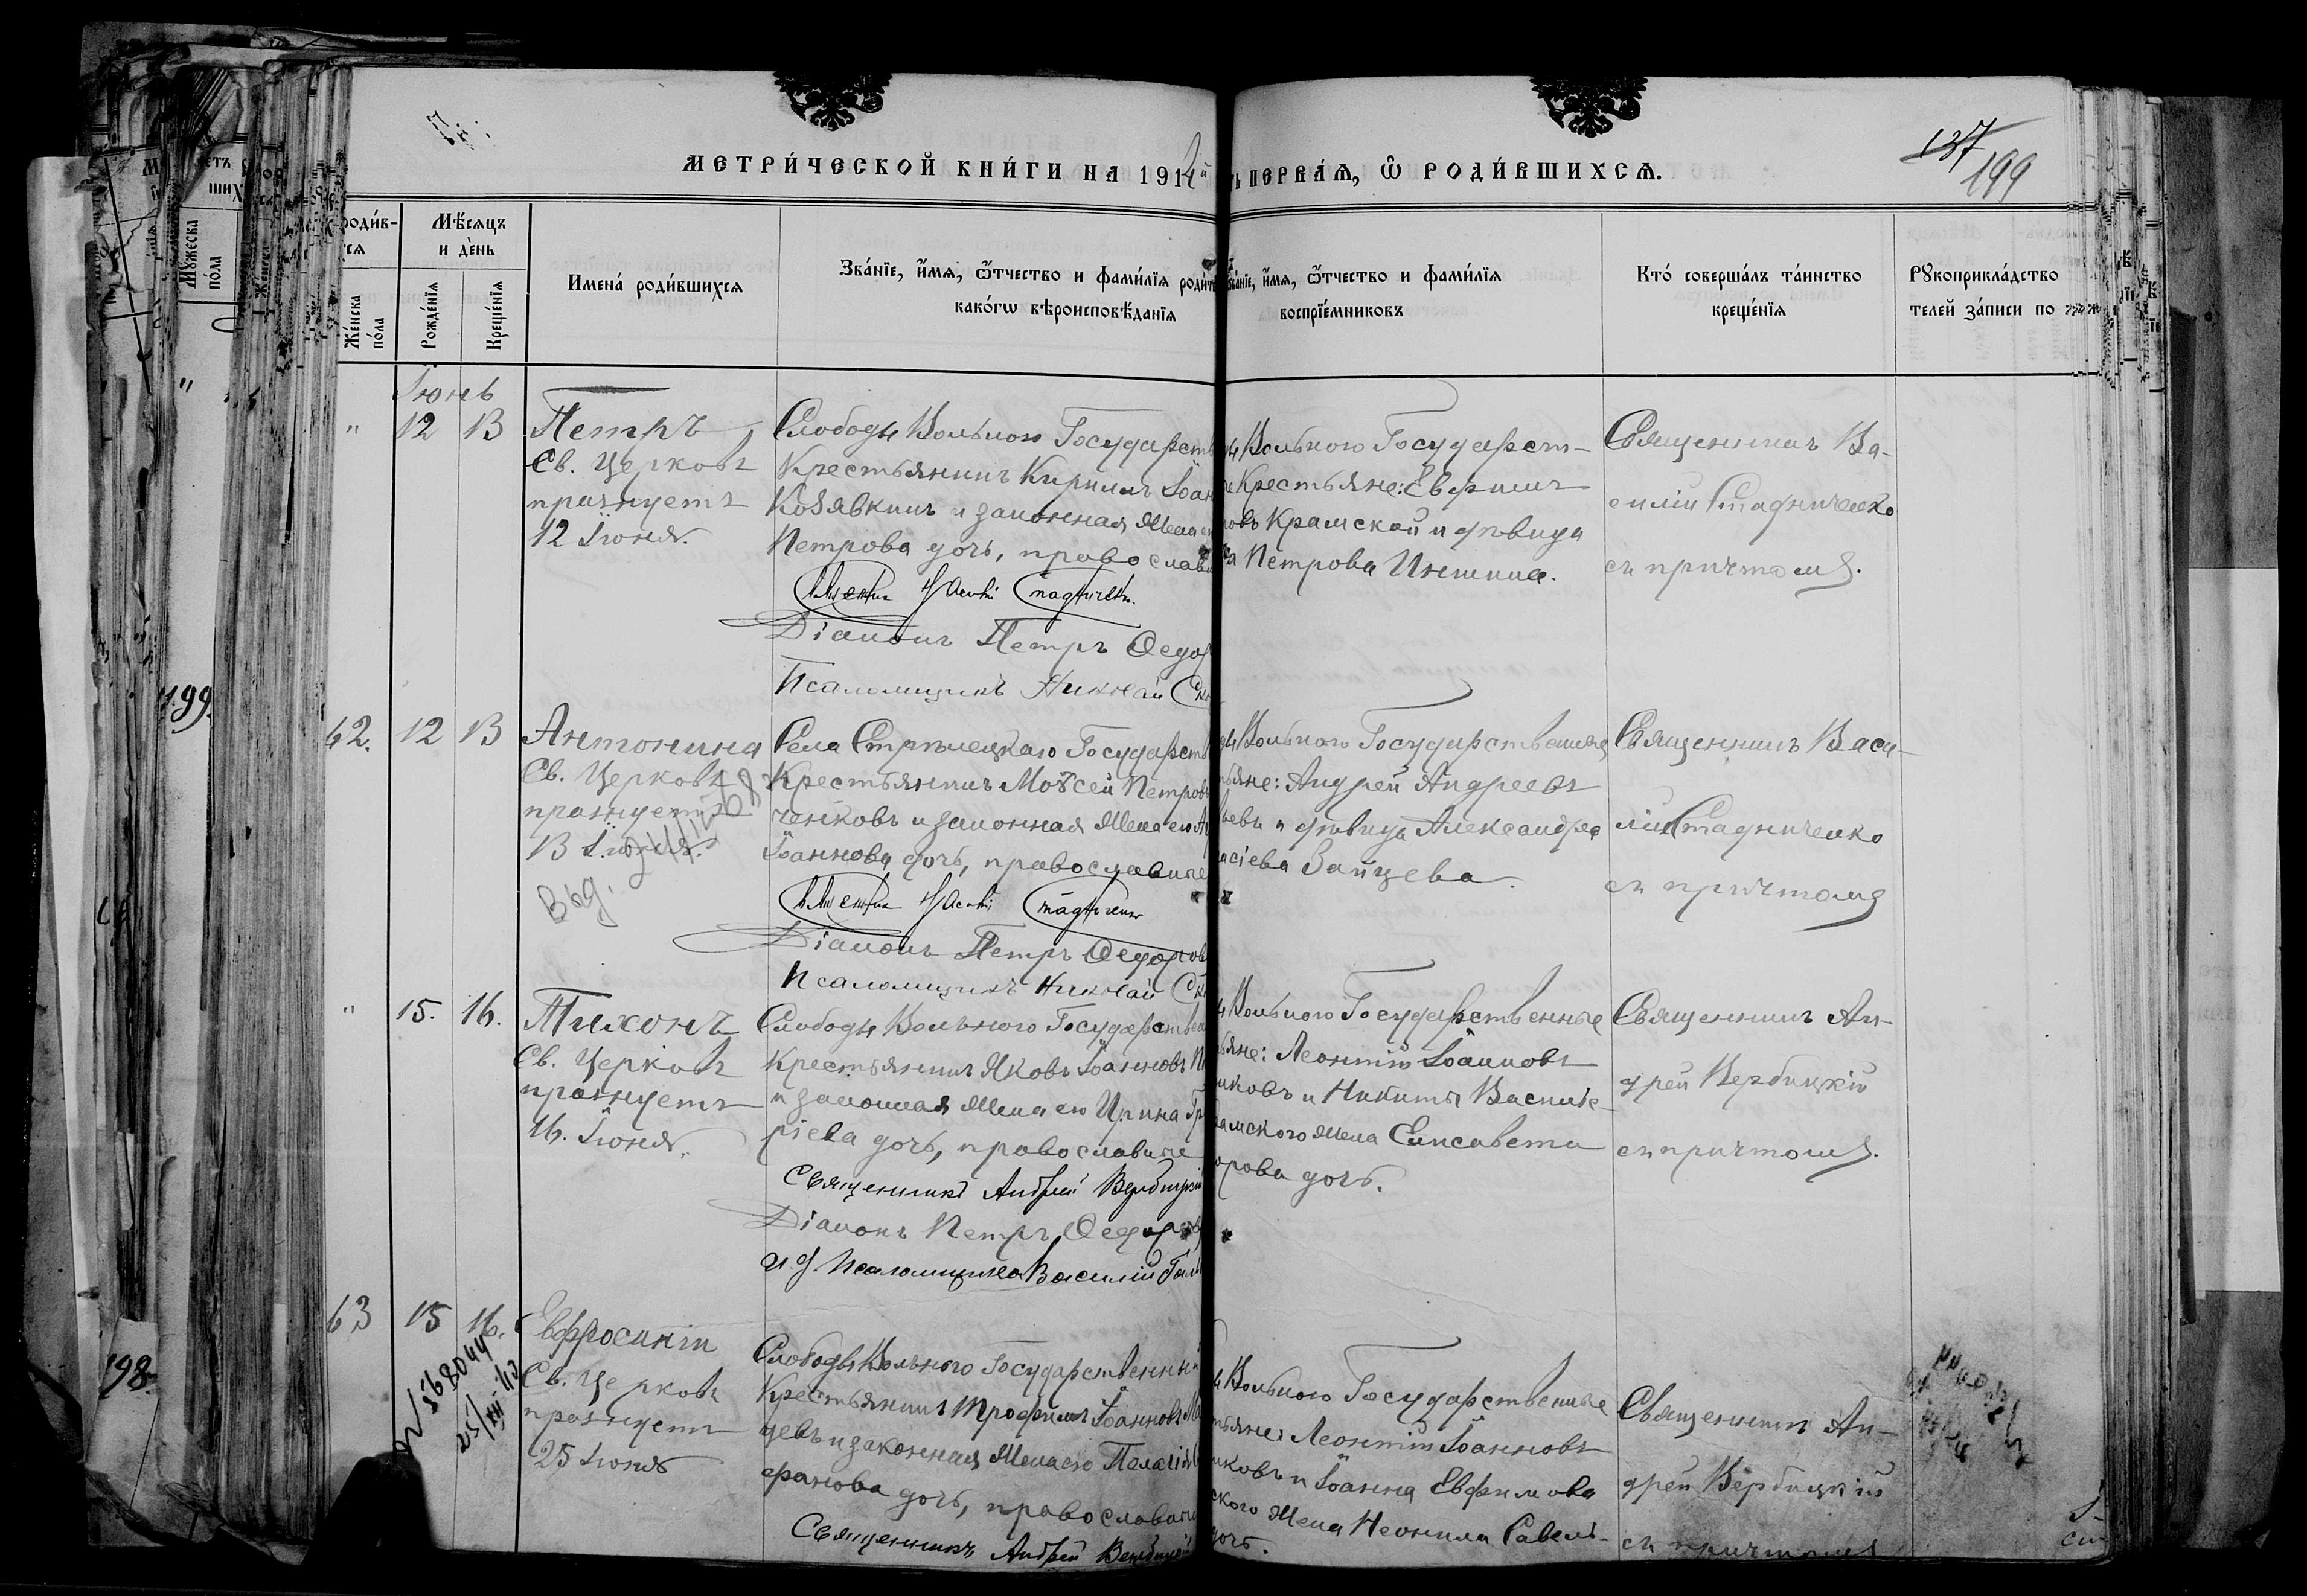 МЕТРИ́ЧЕСКОЙ КНИ́ГИ НА 1912й
ПЕРВАѦ, Ѡ РОДИ́ВШИХСѦ.
137
199
роди́в-
сѧ
Мѣ́сѧцъ
и де́нь
Же́нска
по́ла
Рожде́нїѧ
Креще́нїѧ
Имена́ роди́вшихсѧ
Зва́нїе, и́мѧ, ѻ҆́тчество и фами́лїѧ роди́т
како́гѡ вѣроисповѣ́данїѧ
зва́нїе, и́мѧ, ѻ҆́тчество и фами́лїѧ
воспрїе́мниковъ
Кто́ соверша́лъ та́инство
креще́нїѧ
Рꙋкоприкла́дство
телей за́писи по
Мꙋ́жеска
по́ла
Іюнь
" 12 13
Петръ
Св. Церковь
празнуетъ
12 Іюня.
Слободы Вольного Государств
Крестьянинъ Кириллъ Іоан
Козявкинъ и законная жена ег
Петрова дочь, православн
Священникъ Василій Стадниченко
Діаконъ Петръ Ѳедор
Псаломщикъ Николай Ск
Вольного Государст-
Крестьяне: Евфимъ
ровъ Крамской и дѣвица
Петрова Иншина.
Священникъ Ва-
силій Стадниченко
съ причтомъ.
199.
62. 12 13
Антонина
Св. Церковь
празнуетъ
13 Іюня.
Выд.
Села Стрѣлецкаго Государств
Крестьянинъ Моѵсей Петровъ
ченковъ и законная жена его Ан
Іоаннова дочь, православные
Священникъ Василій Стадниченко
Діаконъ Петръ Ѳедоров
Псаломщикъ Николай Ск
Вольного Государственные
тьяне: Андрей Андреевъ
ьевъ и дѣвица Александра
асіева Зайцева.
Священникъ Васи-
лій Стадниченко
съ причтомъ
" 15. 16.
Тихонъ
Св. Церковь
празнуетъ
16. Іюня.
Слободы Вольного Государствен
Крестьянинъ Яковъ Іоанновъ
и законная жена его Ирина Гр
ріева дочь, православные
Священникъ Андрей Вербицкій
Діаконъ Петръ Ѳедоровъ
И. д. Псаломщика Василій Гал
Вольного Государственные
ьяне: Леонтій Іоанновъ
иковъ и Никиты Василіе-
рамского жена Елисавета
орова дочь.
Священникъ Ан-
дрей Вербицкій
съ причтомъ.
63 15 16.
Евфросинія
Св. Церковь
празнуетъ
25 Іюня
198.
568044
Слободы Вольного Государственный
Крестьянинъ Трофимъ Іоанновъ Ма
цевъ и законная жена его Пелагія
фанова дочь, православные
Священникъ Андрей Вербицкій
Вольного Государственные
тьяне: Леонтій Іоанновъ
иковъ и Іоанна Евфимова
ского жена Неонила Савель-
дочь.
Священникъ Ан-
дрей Вербицкій
съ причтомъ